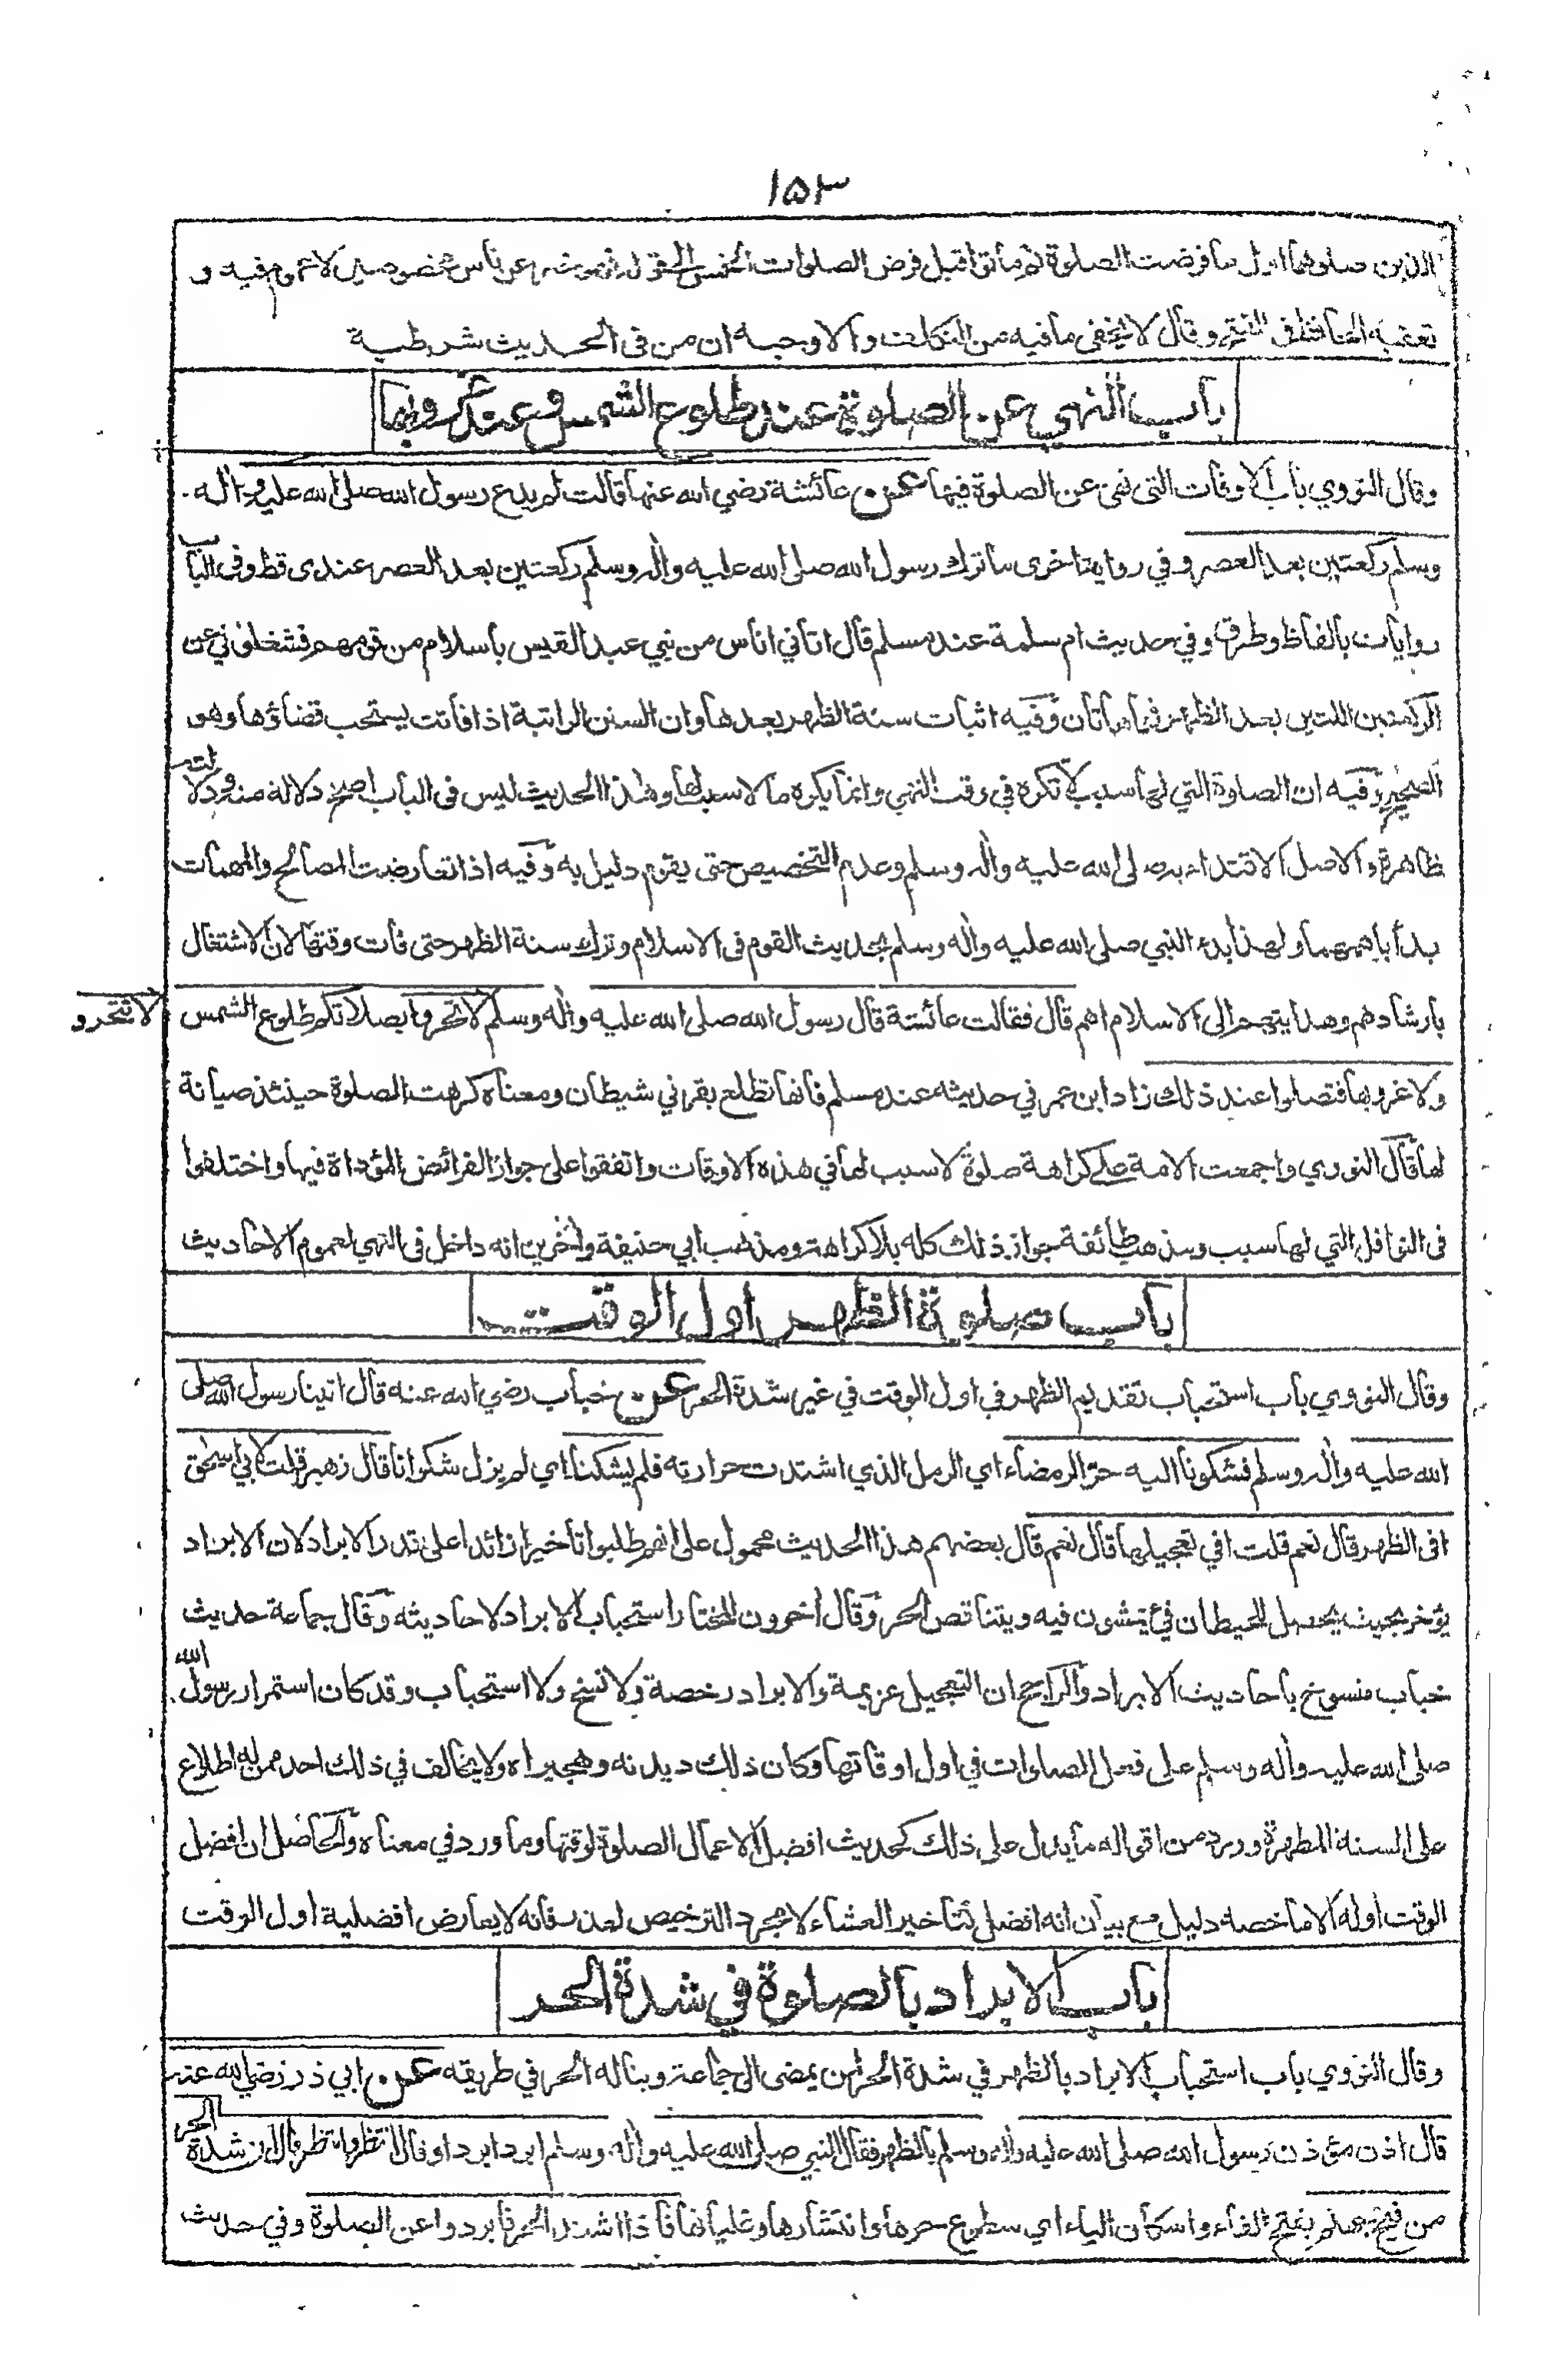 ١٥٣
الذين صلوهما اول ما فرضت الصلوة ثم ماتوا قبل فرض الصلوات الخمس عن ناس مخصوصين لا عموم فيه و
تعقبه الحافظ فى الفتح وقال لا يخفى ما فيه من التكلف والاوجه ان من فى الحديث شرطية
باب النهي عن الصلوة عند طلوع الشمس وعند غروبها
وقال النووي باب الاوقات التى نهى عن الصلوة فيها عن عائشة رضي الله عنها قالت لم يدع رسول الله صلى الله عليه واله
وسلم ركعتين بعد العصر وفي رواية اخرى ما ترك رسول الله صلى الله عليه واله وسلم ركعتين بعد العصر عندى قط وفى الباب
روايات بالفاظ وطرق وفي حديث ام سلمة عند مسلم قال اتاني اناس من بني عبد القيس باسلام من قومهم فشغلوني عن
الركعتين اللتين بعد الظهر فهما هاتان وفيه اثبات سنة الظهر بعدها وان السنن الراتبة اذا فاتت يستحب قضاؤها وهو
الصحيح وفيه ان الصلوة التي لها سبب لا تكره في وقت النهي وانما يكره ما لا سبب لها وهذا الحديث ليس فى الباب اصح دلالة منه ودلالته
ظاهرة والاصل الاقتداء به صلى الله عليه واله وسلم وعدم التخصيص حتى يقوم دليل به وفيه اذا تعارضت المصالح والمهمات
بدأ باهمها ولهذا بدء النبي صلى الله عليه واله وسلم بحديث القوم فى الاسلام وترك سنة الظهر حتى فات وقتها لان الاشتغال
بارشادهم وهدايتهم الى الاسلام اهم قال فقالت عائشة قال رسول الله صلى الله عليه واله وسلم لا تتحروا بصلاتكم طلوع الشمس
لا تتحرو
ولا غروبها فتصلوا عند ذلك زاد ابن عمر في حديثه عند مسلم فانها تطلع بقرني شيطان ومعناه كرهت الصلوة حينئذ صيانة
لها قال النووي واجمعت الامة على كراهة صلوة لا سبب لها في هذه الاوقات واتفقوا على جواز الفرائض المؤداة فيها واختلفوا
فى النوافل التي لها سبب ومذهب طائفة جواز ذلك كله بلا كراهة ومذهب ابي حنيفة واخرين انه داخل فى النهي لعموم الاحاديث
باب صلوة الظهر اول الوقت
وقال النووي باب استحباب تقديم الظهر في اول الوقت في غير شدة الحر عن خباب رضي الله عنه قال اتينا رسول الله صلى
الله عليه واله وسلم فشكونا اليه حر الرمضاء اي الرمل الذي اشتدت حرارته فلم يشكنا اي لم يزل شكوانا قال زهير قلت لابي اسحق
افى الظهر قال نعم قلت افي تعجيلها قال نعم قال بعضهم هذا الحديث محمول على انهم طلبوا تاخيرا زائدا على قدر الابراد لان الابراد
يؤخر بحيث يحصل للحيطان فئ يمشون فيه ويتناقص الحر وقال اخرون المختار استحباب الابراد لاحاديثه وقال جماعة حديث
خباب منسوخ باحاديث الابراد والراجح ان التعجيل عزيمة والابراد رخصة ولا نسخ ولا استحباب وقد كان استمرار رسول الله
صلى الله عليه واله وسلم على فعل الصلوات في اول اوقاتها وكان ذلك ديدنه وهجيراه ولا يخالف في ذلك احد ممن له اطلاع
على السنة المطهرة وورد من اقواله ما يدل على ذلك كحديث افضل الاعمال الصلوة لوقتها وما ورد في معناه والحاصل ان افضل
الوقت اوله الا ما خصه دليل مع بيان انه افضل كتاخير العشاء لا مجرد الترخيص لعذر فانه لا يعارض افضلية اول الوقت
باب الابراد بالصلوة في شدة الحر
وقال النووي باب استحباب الابراد بالظهر في شدة الحر لمن يمضى الى جماعة ويناله الحر في طريقه عن ابي ذر رضي الله عنه
قال اذن مؤذن رسول الله صلى الله عليه واله وسلم بالظهر فقال النبي صلى الله عليه واله وسلم ابرد ابرد او قال انتظر انتظر وقال ان شدة الحر
من فيح جهنم بفتح الفاء واسكان الياء اي سطوع حرها وانتشارها وغليانها فاذا اشتد الحر فابردوا عن الصلوة وفي حديث